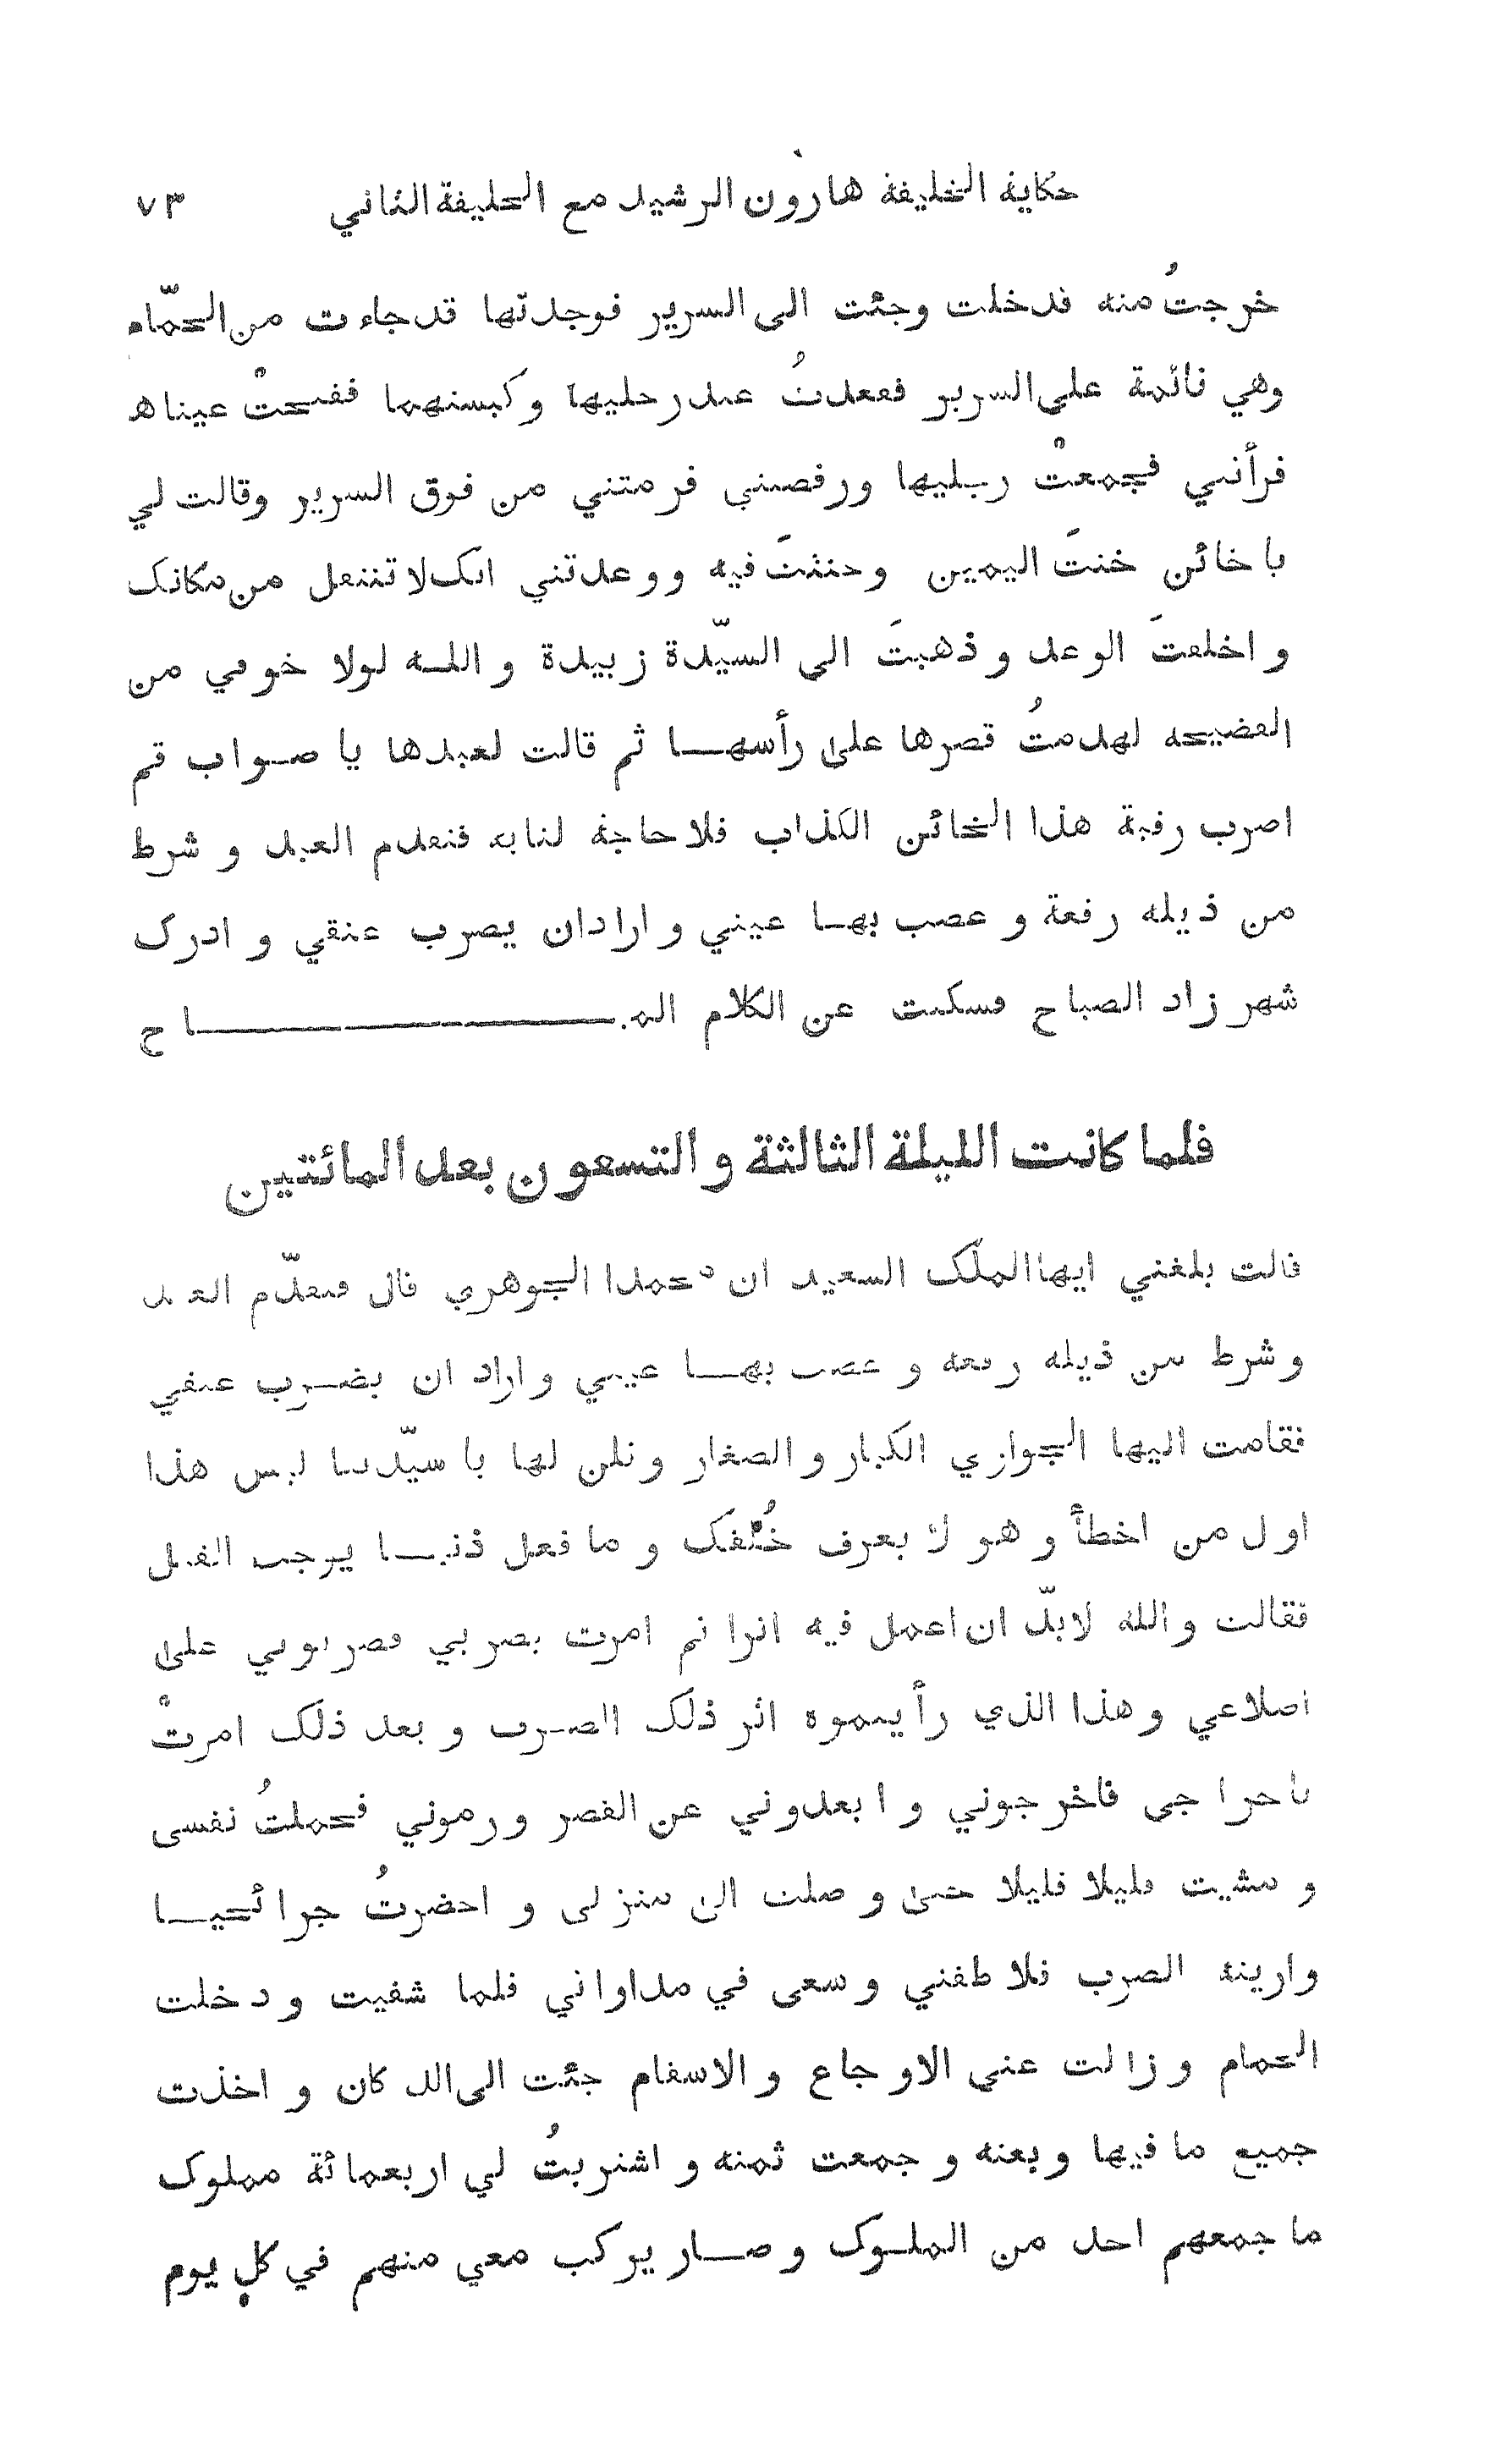 حكاية الخليفة هارون الرشيد مع الخليفة الثاني ٧٣
خرجتُ منه فدخلت وجئت الى السرير فوجدتها قد جاءت من الحمّام
وهي نائمة على السرير فقعدتُ عند رجليها وكبستهما ففتحتْ عيناها
فرأتني فجمعتْ رجليها ورفصتني فرمتني من فوق السرير وقالت لي
يا خائن خنتَ اليمين وحنثتَ فيه ووعدتني انك لا تنتقل من مكانك
واخلفتَ الوعد وذهبتَ الى السيّدة زبيدة والله لولا خوفي من
الفضيحة لهدمتُ قصرها على رأسها ثم قالت لعبدها يا صواب قم
اضرب رقبة هذا الخائن الكذاب فلا حاجة لنا به فتقدم العبد وشرط
من ذيله رقعة وعصب بها عيني واراد ان يضرب عنقي وادرك
شهرزاد الصباح فسكتت عن الكلام المباح
فلما كانت الليلة الثالثة والتسعون بعد المائتين
قالت بلغني ايها الملك السعيد ان محمدا الجوهري قال فتقدّم العبد
وشرط من ذيله رقعة وعصب بها عيني واراد ان يضرب عنقي
فقامت اليها الجواري الكبار والصغار وقلن لها يا سيّدتنا ليس هذا
اول من اخطأ وهو لا يعرف خُلقك وما فعل ذنبا يوجب القتل
فقالت والله لابدّ ان اعمل فيه اثرا ثم امرت بضربي فضربوني على
اضلاعي وهذا الذي رأيتموه اثر ذلك الضرب وبعد ذلك امرتْ
باخراجي فاخرجوني وابعدوني عن القصر ورموني فحملتُ نفسي
ومشيت قليلا قليلا حتى وصلت الى منزلي واحضرتُ جرائحيا
واريته الضرب فلاطفني وسعى في مداواتي فلما شفيت ودخلت
الحمام وزالت عني الاوجاع والاسقام جئت الى الدكان واخذت
جميع ما فيها وبعته وجمعت ثمنه واشتريتُ لي اربعمائة مملوك
ما جمعهم احد من الملوك وصار يركب معي منهم في كل يوم